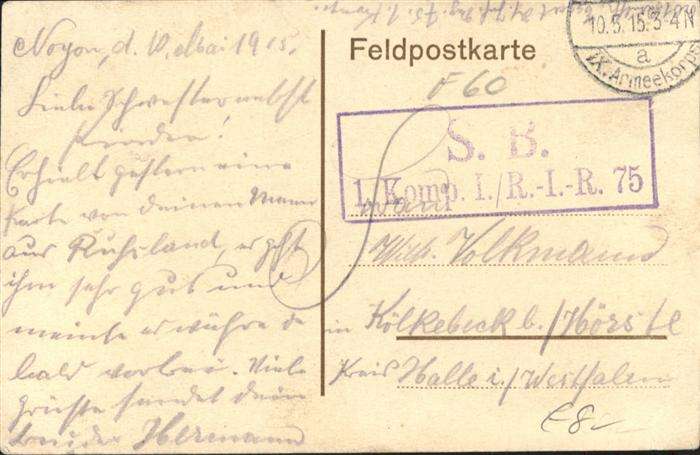 Noyon, d. 10. Mai 1915.
Liebe Schwester nebst
Kinder!
Erhielt gestern eine
Karte von deinen Mann
aus Rußland, es geht
ihm sehr gut und
meinte es währe da
bald vorbei. Viele
Grüße sendet dein
Bruder Hermann
Feldpostkarte
F 60
10.5.15.3-4N
a
IX. Armeekorps
S. B.
1. Komp. I./R.-I.-R. 75
Frau
Wilh. Volkmann
in Kölkebeck b./Hörste
Kreis Halle i./Westfalen
€8-